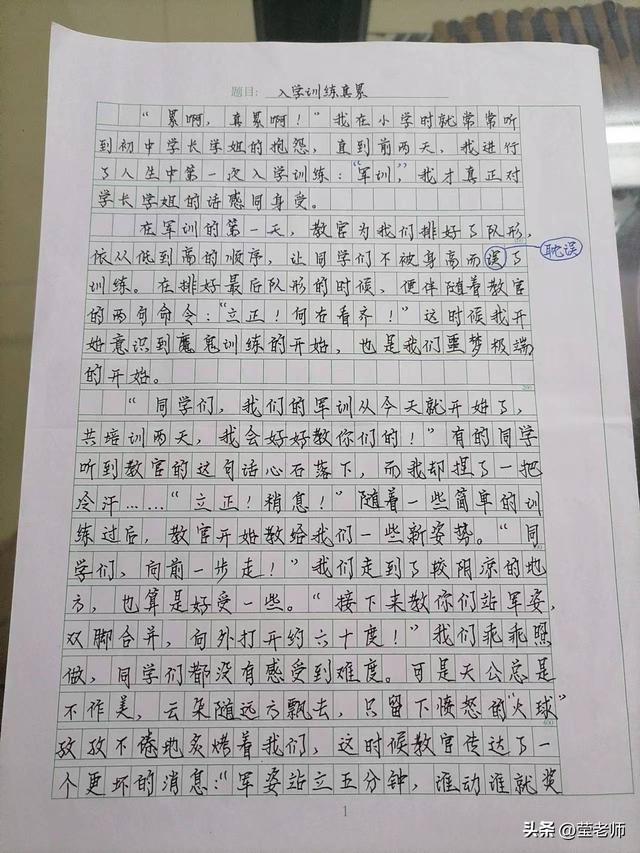 题目: 入学训练真累
“累啊，真累啊！”我在小学时就常常听
到初中学长学姐的抱怨，直到前两天，我进行
了人生中第一次入学训练：“军训，”我才真正对
学长学姐的话感同身受。
在军训的第一天，教官为我们排好了队形，
依从低到高的顺序，让同学们不被身高而误了
耽误
训练。在排好最后队形的时候，便伴随着教官
的两句命令：“立正！向右看齐！”这时候我开
始意识到魔鬼训练的开始，也是我们噩梦极端
的开始。
200
“同学们，我们的军训从今天就开始了，
共培训两天，我会好好教你们的！”有的同学
听到教官的这句话心石落下，而我却捏了一把
冷汗……“立正！稍息！”随着一些简单的训
练过后，教官开始教给我们一些新姿势。“同
学们，向前一步走！”我们走到了较阴凉的地
方，也算是好受一些。“接下来教你们站军姿，
双脚合并，向外打开约六十度！”我们乖乖照
做，同学们都没有感受到难度。可是天公总是
不作美，云朵随远方飘去，只留下愤怒的“火球”
孜孜不倦地炙烤着我们，这时候教官传达了一
个更坏的消息：“军姿站立五分钟，谁动谁就奖
1
头条 @莹老师